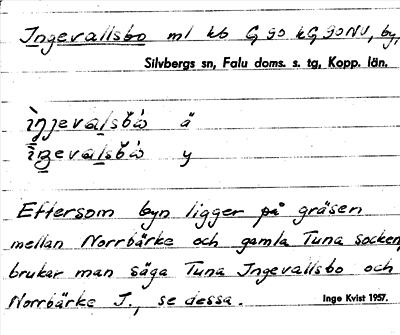 Ingevallsbo ml kb G 90 kG 90 NV, by,
Silvbergs sn, Falu doms. s. tg, Kopp. län.
ä
y
Eftersom byn ligger på gräsen
mellan Norrbärke och gamla Tuna socken,
brukar man säga Tuna Ingevallsbo och
Norrbärke I., se dessa.
Inge Kvist 1957.